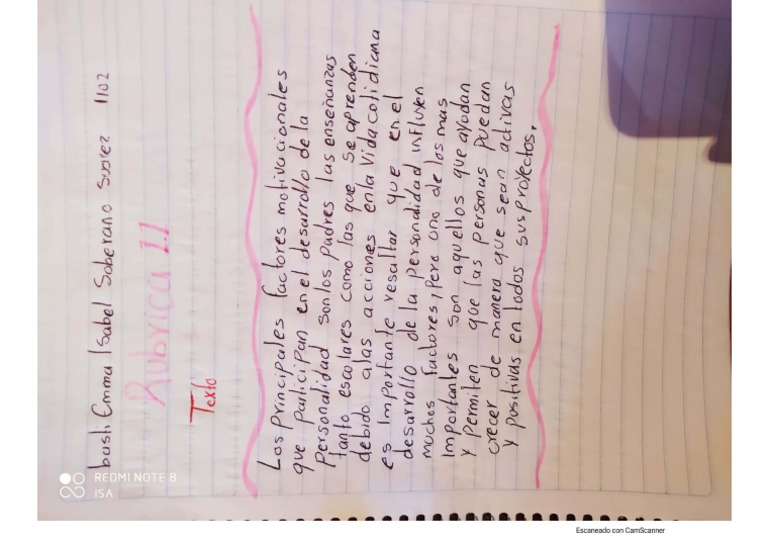 basti Emma Isabel Soberano Suarez 1102
Rubrica 1.1
Texto
Los principales factores motivacionales
que participan en el desarrollo de la
personalidad son los padres las enseñanzas
tanto escolares como las que se aprenden
debido alas acciones en la vida cotidiana
es importante resaltar que en el
desarrollo de la personalidad influyen
muchos factores, pero uno de los mas
importantes son aquellos que ayudan
y permiten que las personas puedan
crecer de manera que sean activas
y positivas en todos sus proyectos.
REDMI NOTE 8
ISA
Escaneado con CamScanner